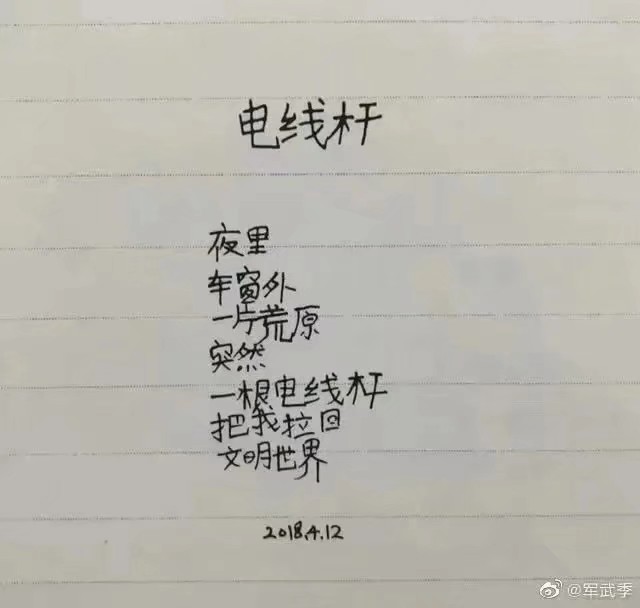 电线杆
夜里
车窗外
一片荒原
突然
一根电线杆
把我拉回
文明世界
2018.4.12
@军武季